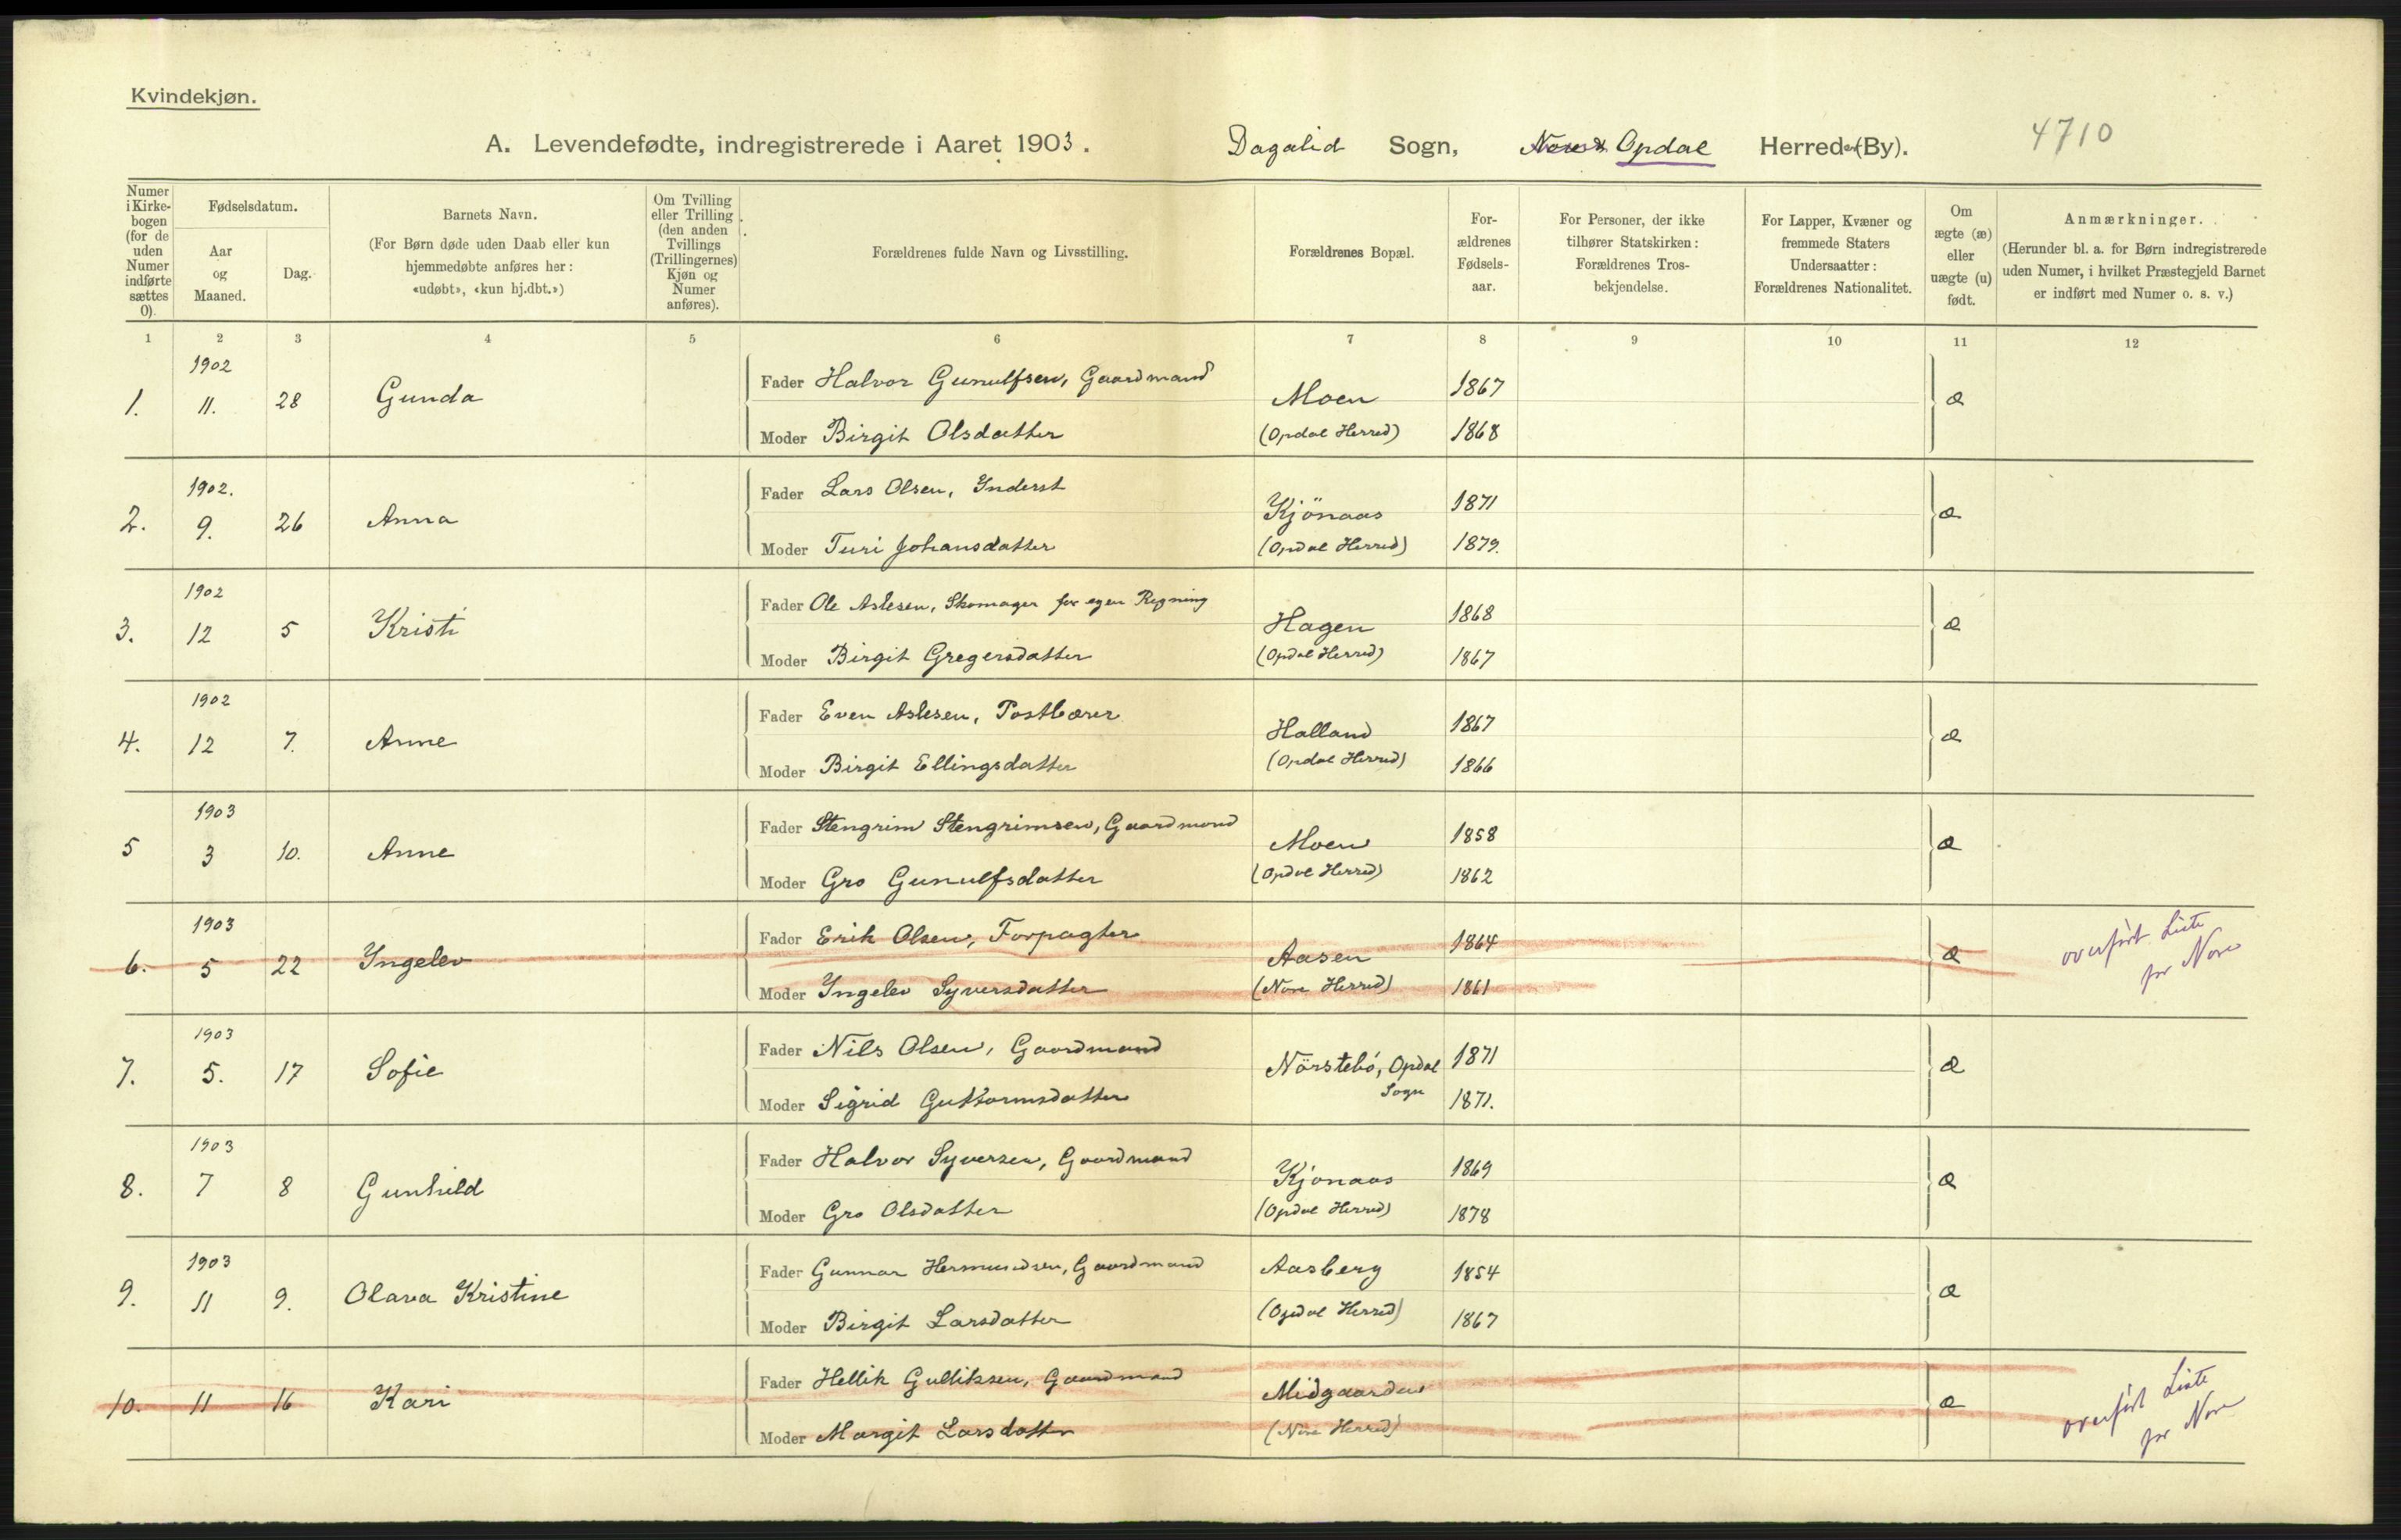 Kvindekjøn.
A. Levendefødte, indregistrerede i Aaret 1903. Dagalid Sogn, Nore & Opdal Herreder (By). 4710
Numer i Kirkebogen (for de uden Numer indførte sættes 0).
Fødselsdatum.
Aar og Maaned.
Dag.
Barnets Navn.
(For Børn døde uden Daab eller kun hjemmedøbte anføres her: «udøbt», «kun hj.dbt.»)
Om Tvilling eller Trilling (den anden Tvillings (Trillingernes) Kjøn og Numer anføres).
Forældrenes fulde Navn og Livsstilling.
Forældrenes Bopæl.
Forældrenes Fødselsaar.
For Personer, der ikke tilhører Statskirken: Forældrenes Trosbekjendelse.
For Lapper, Kvæner og fremmede Staters Undersaatter: Forældrenes Nationalitet.
Om ægte (æ) eller uægte (u) født.
Anmærkninger.
(Herunder bl. a. for Børn indregistrerede uden Numer, i hvilket Præstegjeld Barnet er indført med Numer o. s. v.)
1 2 3 4 5 6 7 8 9 10 11 12
1902
Fader Halvor Gunulfsen, Gaardmand 1867
1. 11. 28 Gunda Moen æ
Moder Birgit Olsdatter (Opdal Herred) 1868
1902.
Fader Lars Olsen, Inderst 1871
2. 9. 26 Anna Kjönaas æ
Moder Turi Johansdatter (Opdal Herred) 1879.
1902
Fader Ole Aslesen, Skomager for egen Regning 1868
3. 12 5 Kristi Hagen æ
Moder Birgit Gregersdatter (Opdal Herred) 1867
1902
Fader Even Aslesen, Postbærer 1867
4. 12 7. Anne Halland æ
Moder Birgit Ellingsdatter (Opdal Herred) 1866
1903
Fader Stengrim Stengrimsen, Gaardmand 1858
5 3 10. Anne Moen æ
Moder Gro Gunulfsdatter (Opdal Herred) 1862
1903
Fader Erik Olsen, Forpagter 1864
6. 5 22 Ingelev Aasen æ overført Liste
Moder Ingelev Syversdatter (Nore Herred) 1861 for Nore
1903
Fader Nils Olsen, Gaardmand 1871
7. 5. 17 Sofie Nörstebö, Opdal æ
Moder Sigrid Guttormsdatter Sogn 1871.
1903
Fader Halvor Syversen, Gaardmand 1869
8. 7 8 Gunhild Kjönaas æ
Moder Gro Olsdatter (Opdal Herred) 1878
1903
Fader Gunnar Hermundsen, Gaardmand Aasberg 1854
9. 11 9. Olava Kristine æ
Moder Birgit Larsdatter (Opdal Herred) 1867
Fader Hellik Gulliksen, Gaardmand Midgaarden
10. 11 16 Kari æ overført Liste
Moder Margit Larsdatter (Nore Herred) for Nore